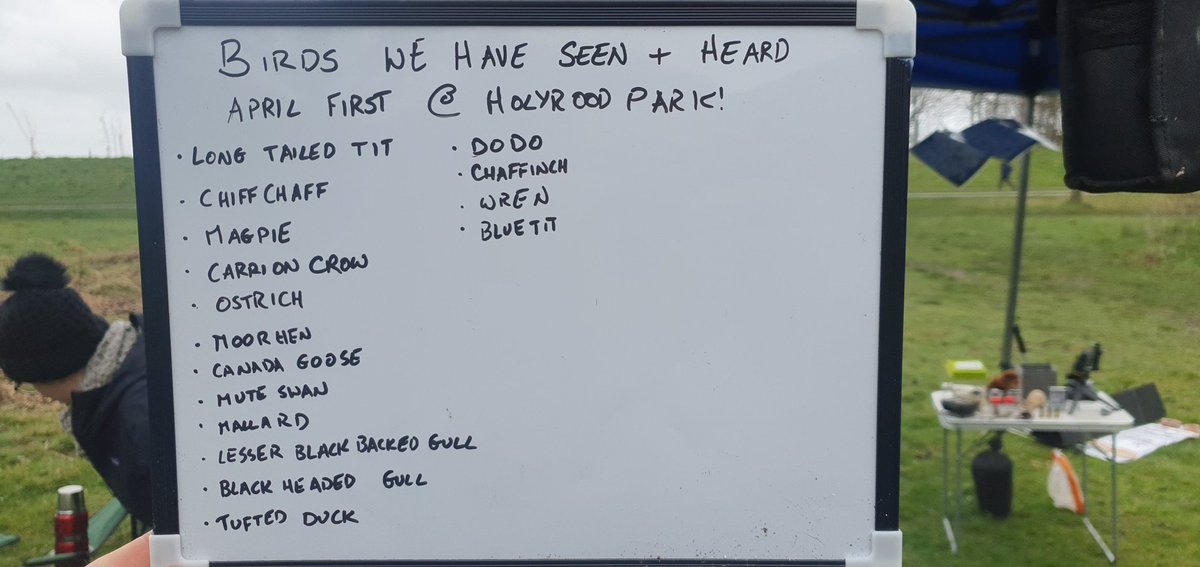 BIRDS WE HAVE SEEN + HEARD
APRIL FIRST @ HOLYROOD PARK!
• LONG TAILED TIT
• CHIFFCHAFF
• MAGPIE
• CARRION CROW
• OSTRICH
• MOORHEN
• CANADA GOOSE
• MUTE SWAN
• MALLARD
• LESSER BLACK BACKED GULL
• BLACK HEADED GULL
• TUFTED DUCK
• DODO
• CHAFFINCH
• WREN
• BLUETIT